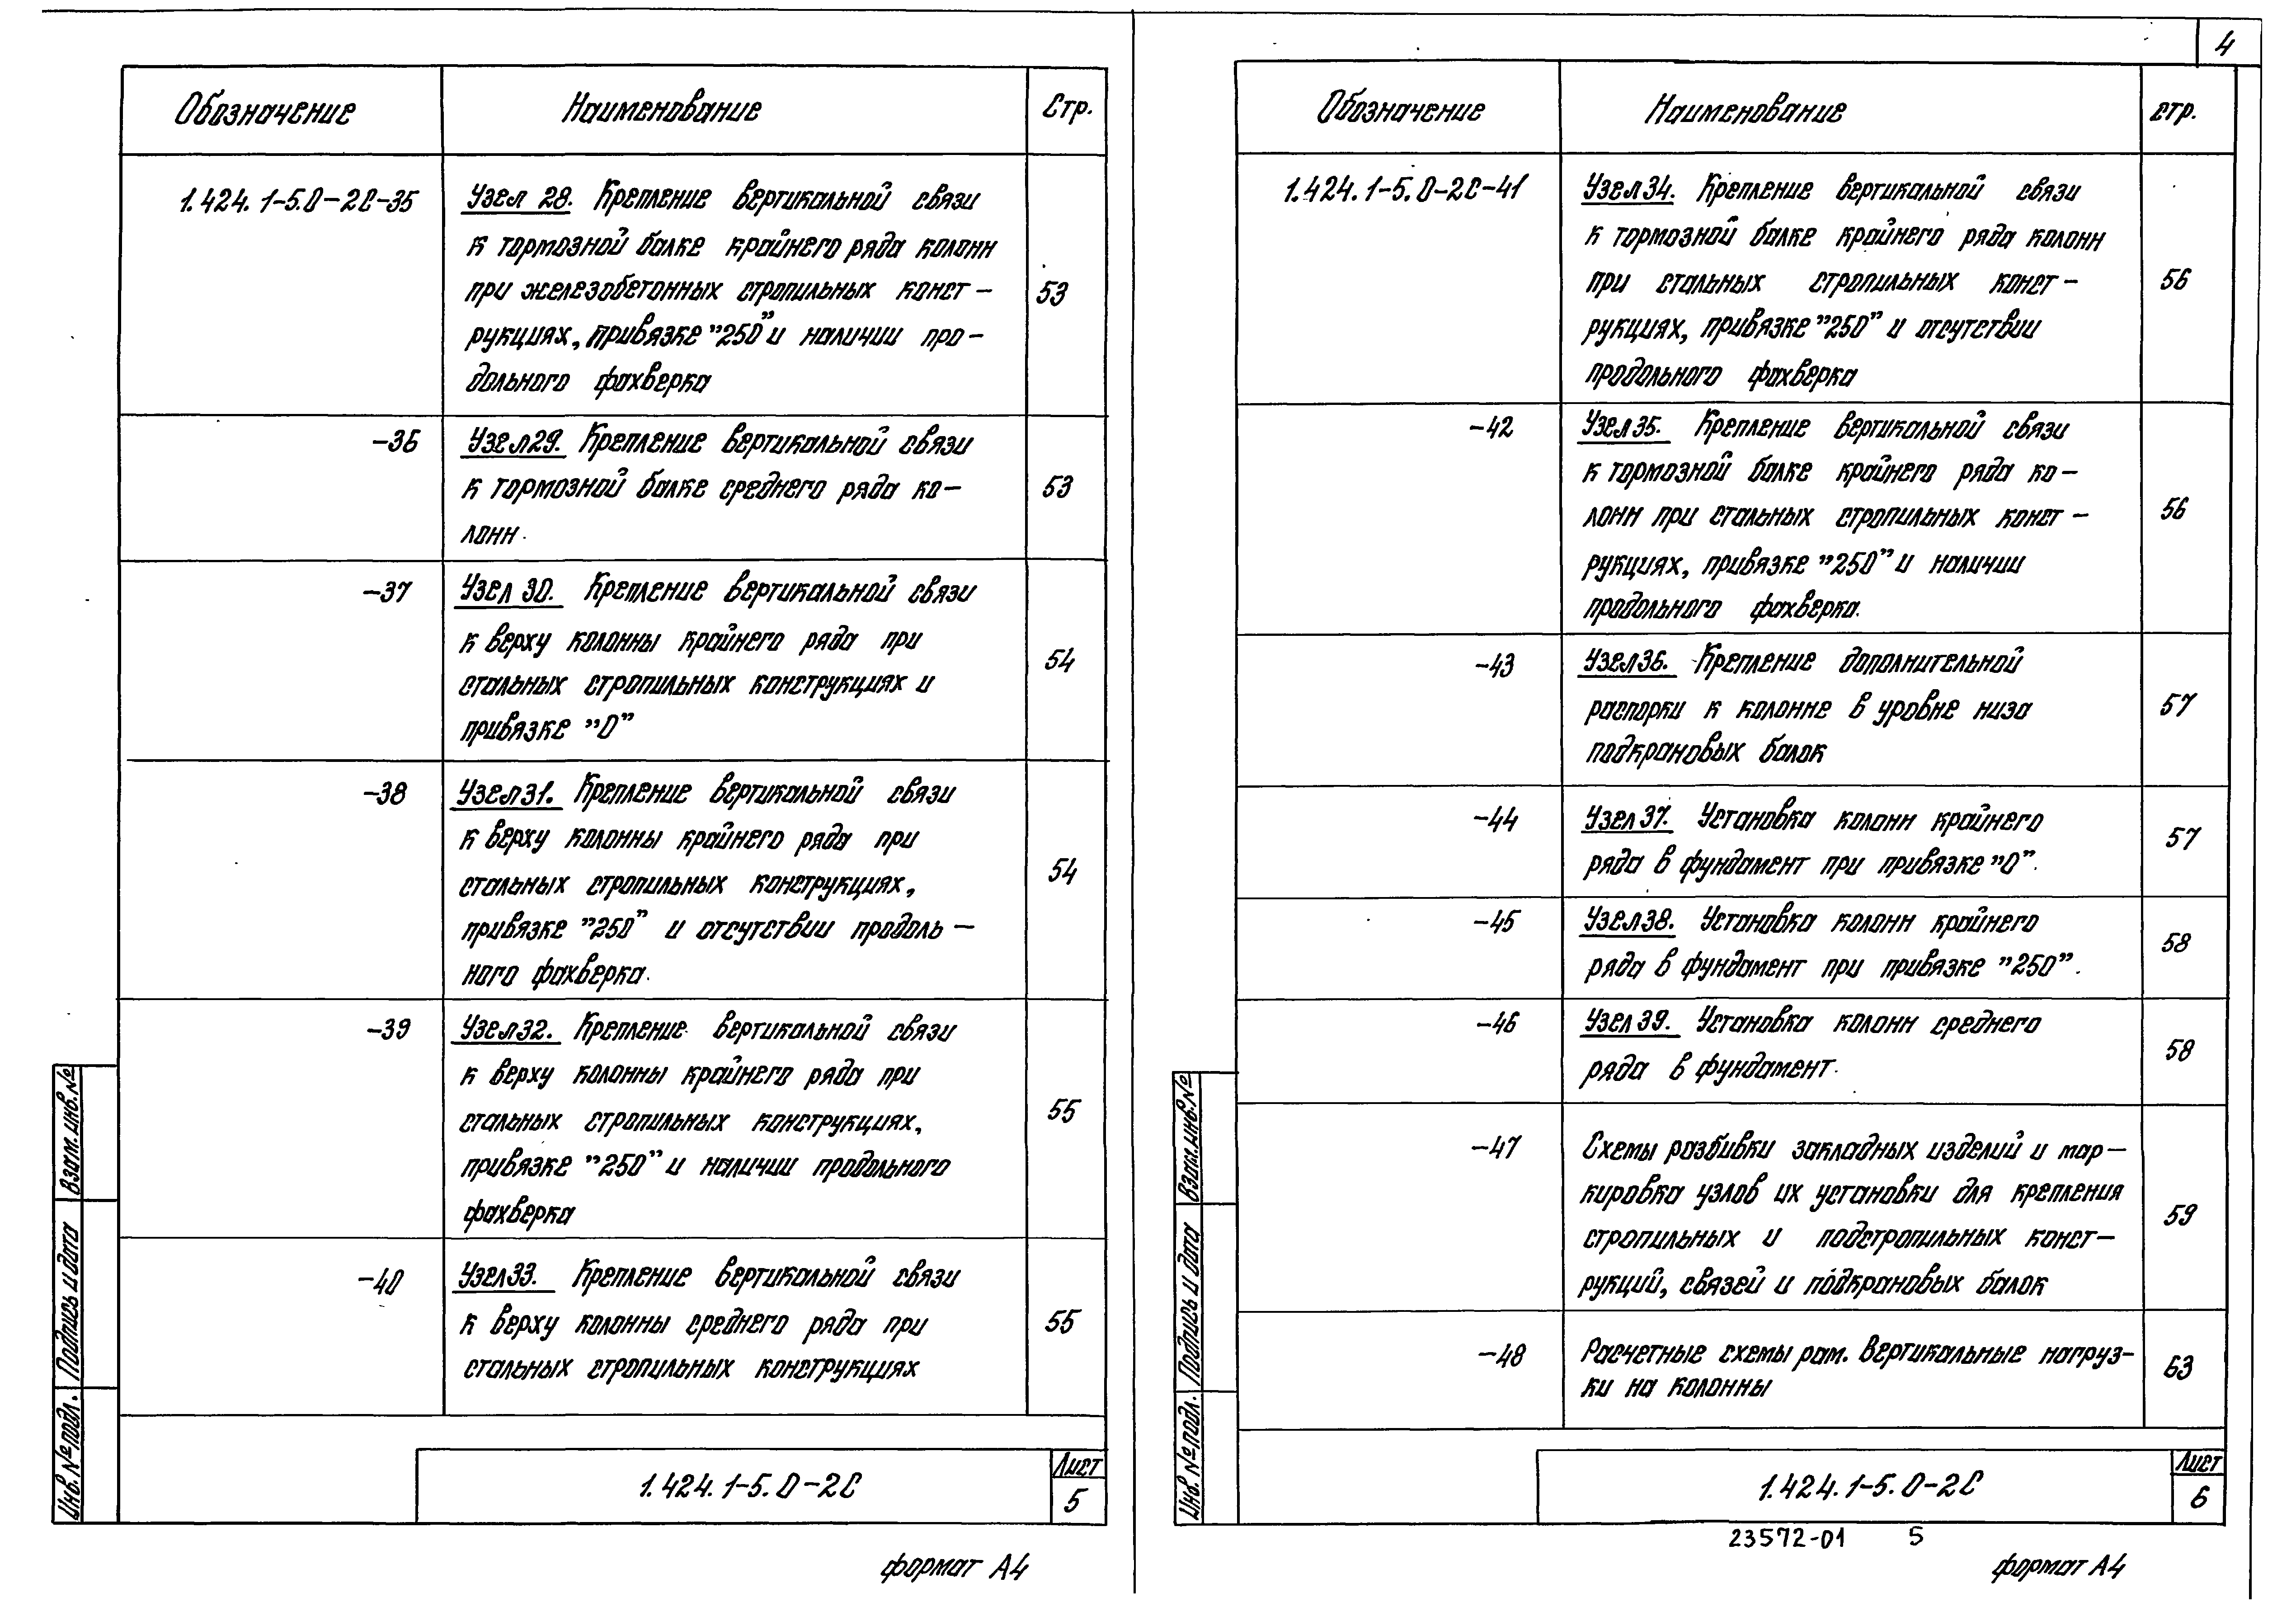 4
Обозначение
Наименование
Стр.
1.424.1-5.0-2С-35
Узел 28. Крепление вертикальной связи
к тормозной балке крайнего ряда колонн
при железобетонных стропильных конст-
рукциях, привязке "250" и наличии про-
дольного фахверка
53
-36
Узел 29. Крепление вертикальной связи
к тормозной балке среднего ряда ко-
лонн.
53
-37
Узел 30. Крепление вертикальной связи
к верху колонны крайнего ряда при
стальных стропильных конструкциях и
привязке "0"
54
-38
Узел 31. Крепление вертикальной связи
к верху колонны крайнего ряда при
стальных стропильных конструкциях,
привязке "250" и отсутствии продоль-
ного фахверка.
54
-39
Узел 32. Крепление вертикальной связи
к верху колонны крайнего ряда при
стальных стропильных конструкциях,
привязке "250" и наличии продольного
фахверка
55
-40
Узел 33. Крепление вертикальной связи
к верху колонны среднего ряда при
стальных стропильных конструкциях
55
Взам. инв. №
Подпись и дата
Инв. № подл.
1.424.1-5.0-2С
Лист
5
формат А4
Обозначение
Наименование
стр.
1.424.1-5.0-2С-41
Узел 34. Крепление вертикальной связи
к тормозной балке крайнего ряда колонн
при стальных стропильных конст-
рукциях, привязке "250" и отсутствии
продольного фахверка
56
-42
Узел 35. Крепление вертикальной связи
к тормозной балке крайнего ряда ко-
лонн при стальных стропильных конст-
рукциях, привязке "250" и наличии
продольного фахверка.
56
-43
Узел 36. Крепление дополнительной
распорки к колонне в уровне низа
подкрановых балок
57
-44
Узел 37. Установка колонн крайнего
ряда в фундамент при привязке "0".
57
-45
Узел 38. Установка колонн крайнего
ряда в фундамент при привязке "250".
58
-46
Узел 39. Установка колонн среднего
ряда в фундамент.
58
-47
Схемы разбивки закладных изделий и мар-
кировка узлов их установки для крепления
стропильных и подстропильных конст-
рукций, связей и подкрановых балок
59
-48
Расчетные схемы рам. Вертикальные нагруз-
ки на колонны
63
Взам. инв. №
Подпись и дата
Инв. № подл.
1.424.1-5.0-2С
Лист
6
23572-01 5
формат А4